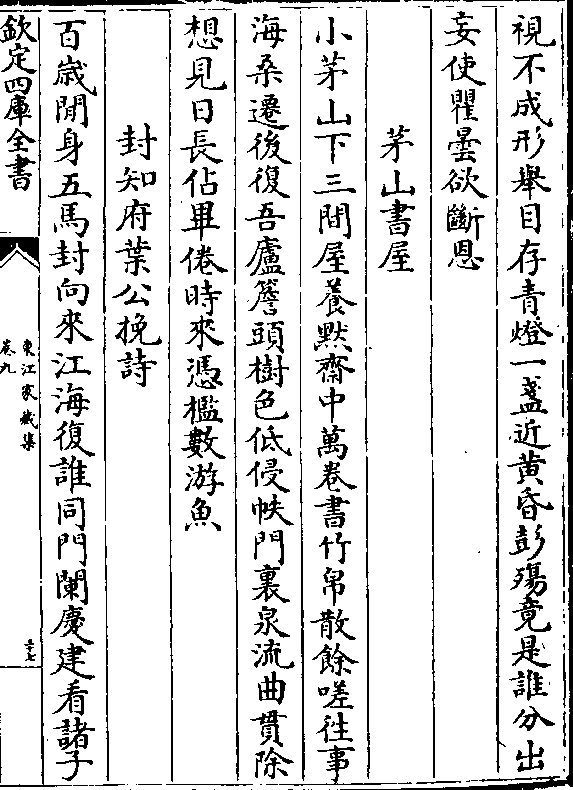 視不成形舉目存青燈一盞近黄昏彭殤竟是誰分出
妄使瞿曇欲斷恩
茅山書屋
小茅山下三間屋養默齋中萬卷書竹帛散餘嗟徃事
海桑遷後復吾廬簷頭樹色低侵帙門裏泉流曲貫除
想見日長佔畢倦時來憑檻數游魚
封知府葉公挽詩
百歳閒身五馬封向來江海復誰同門闌慶建看諸子
欽定四庫全書
東江家藏集
卷九